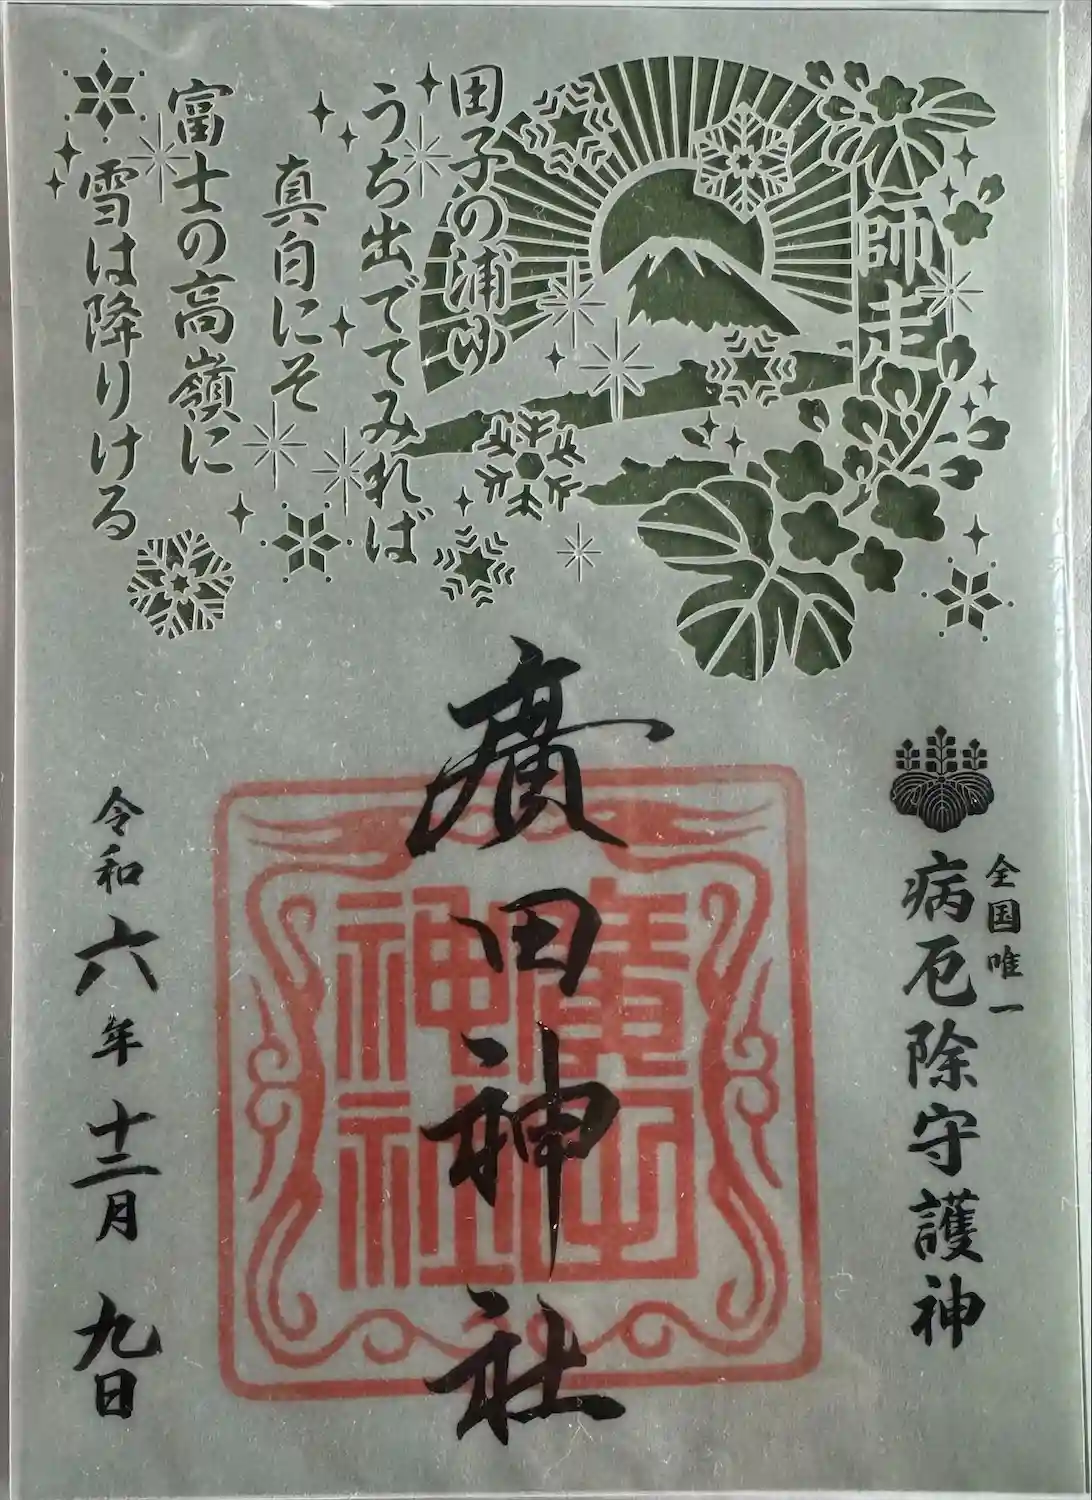 師走
田子の浦ゆ
うち出でてみれば
真白にそ
富士の高嶺に
雪は降りける
全国唯一
病厄除守護神
廣田神社
廣田
神社
令和六年十二月九日